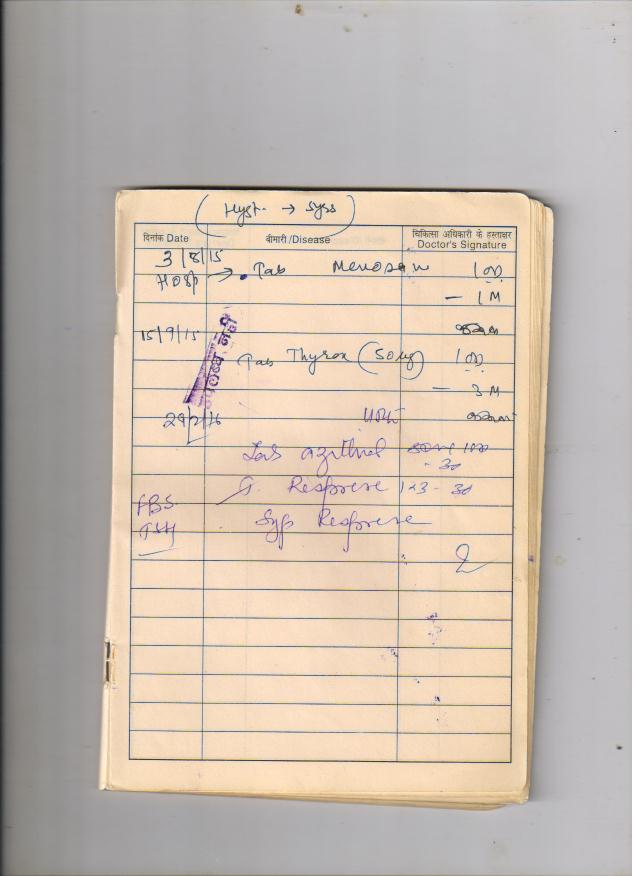 (Hyst. → 5yrs)
दिनांक Date बीमारी/Disease चिकित्सा अधिकारी के हस्ताक्षर
Doctor's Signature
3/8/15
Hosp → • Tab Menosan 1 OD
— 1 M
15/9/15
उपलब्ध नहीं
Tab Thyrox (50 ug) 1 OD
— 3 M
29/2/16 URTI
Tab azithral 500mg 1 OD
- 3d
T. Resprese 1x3 - 3d
FBS
TSH
Syp Resprese